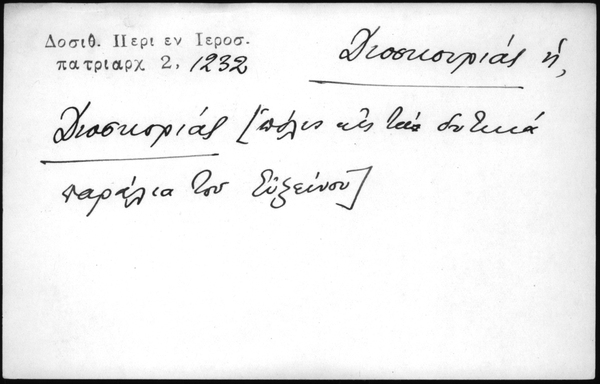 Δοσιθ. Περι εν Ιεροσ.
πατριαρχ 2, 1232
Διοσκουριάς ή,
Διοσκοριάς [πόλις εἰς τὰ δυτικά
παράλια τοῦ Εὐξείνου]